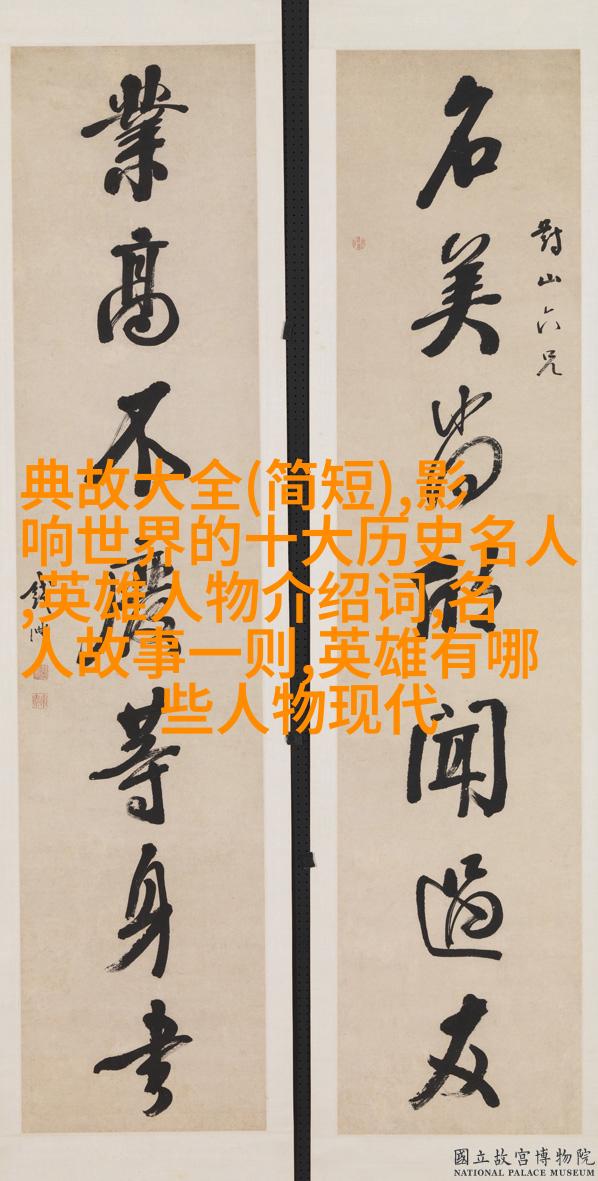 對山六兄
名美尚聞過友
業高不廢等身書
典故大全(简短),影
响世界的十大历史名人
,英雄人物介绍词,名
人故事一则,英雄有哪
些人物现代
國立故宮博物院
NATIONAL PALACE MUSEUM